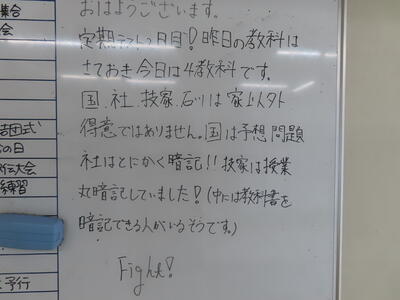 集合
会
結団式
の日
伝大会
練習
予行
おはようございます。
定期テスト2日目!昨日の教科は
さておき今日は4教科です。
国、社、技家、石川は家以外
得意ではありません。国は予想問題
社はとにかく暗記!!技家は授業
丸暗記していました!(中には教科書を
暗記できる人がいるそうです。)
Fight!